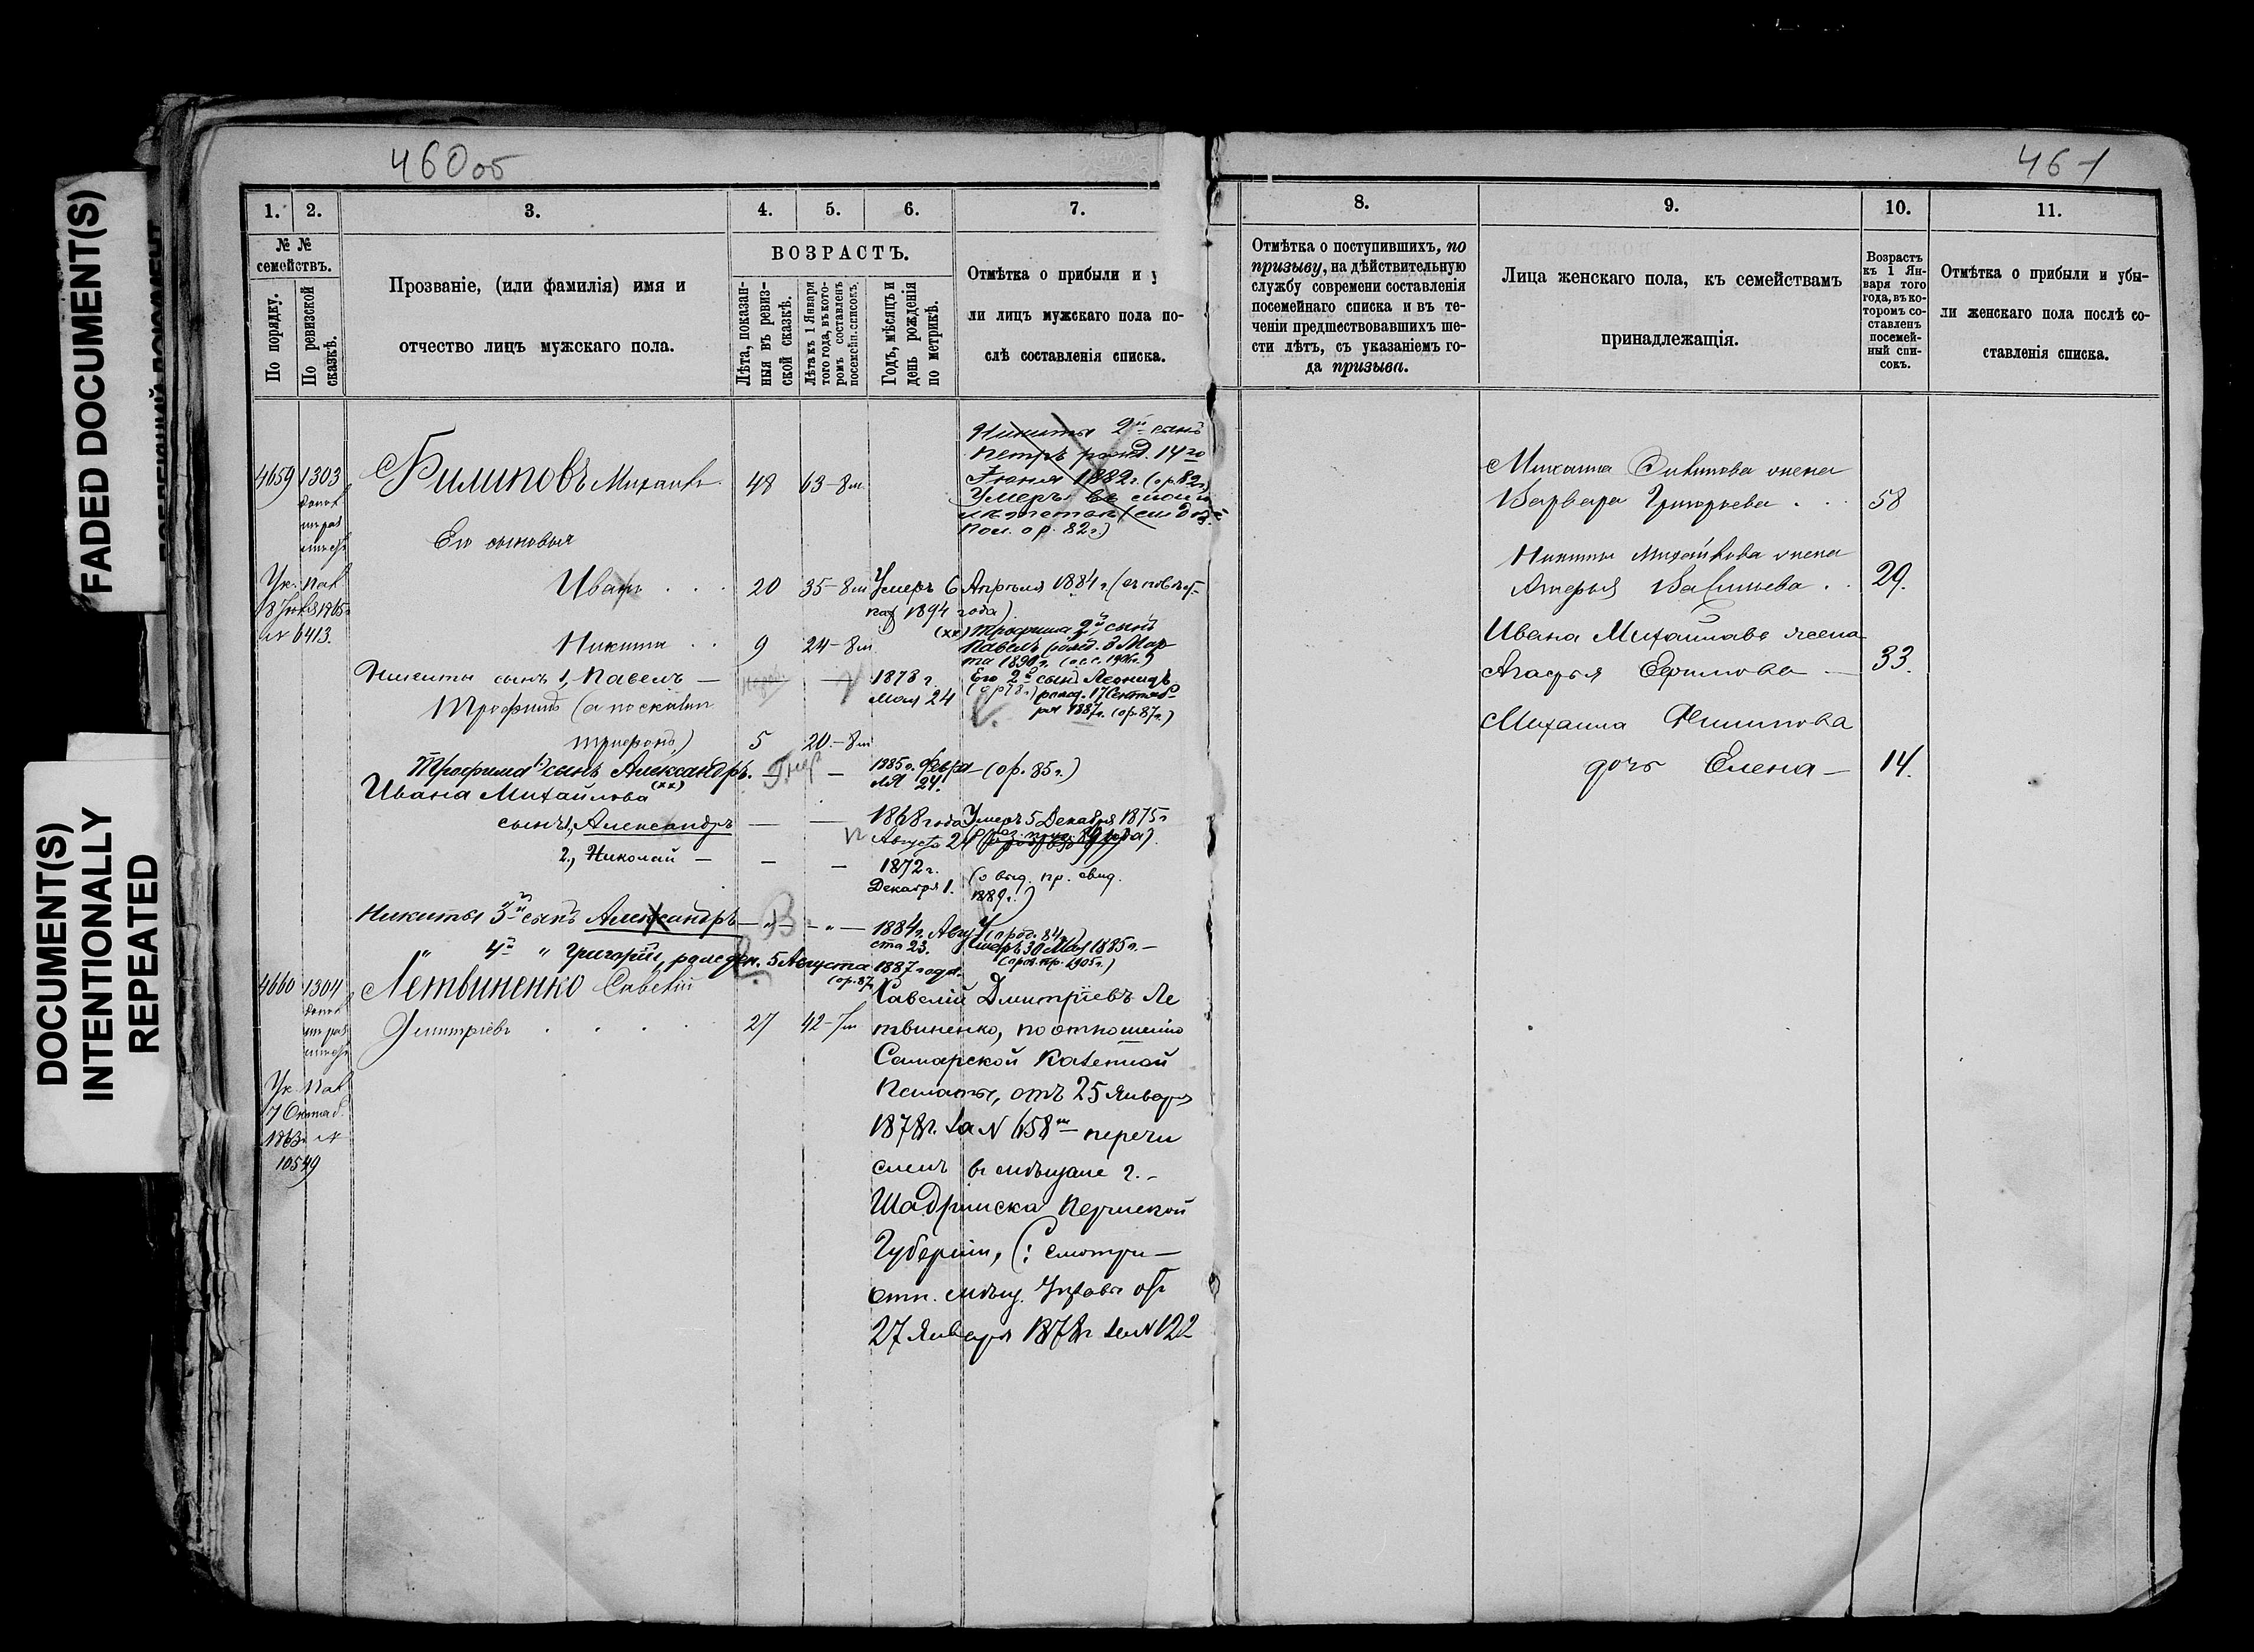 460об
461
FADED DOCUMENT(S)
DOCUMENT(S)
INTENTIONALLY
REPEATED
1.
2.
3.
4.
5.
6.
7.
№ №
семействъ.
По порядку.
По ревизской
сказкѣ.
Прозваніе, (или фамилія) имя и
отчество лицъ мужскаго пола.
ВОЗРАСТЪ.
Лѣта, показан-
ныя въ ревиз-
ской сказкѣ.
Лѣта къ 1 Января
того года, въ кото-
ромъ составленъ
посемейн. списокъ.
Годъ, мѣсяцъ и
день рожденія
по метрикѣ.
Отмѣтка о прибыли и у
ли лицъ мужскаго пола по-
слѣ составленія списка.
8.
9.
10.
11.
Отмѣтка о поступившихъ, по
призыву, на дѣйствительную
службу современи составленія
посемейнаго списка и въ те-
ченіи предшествовавшихъ ше-
сти лѣтъ, съ указаніемъ го-
да призыва.
Лица женскаго пола, къ семействамъ
принадлежащія.
Возрастъ
къ 1 Ян-
варя того
года, въ ко-
торомъ со-
ставленъ
посемей-
ный спи-
сокъ.
Отмѣтка о прибыли и убы-
ли женскаго пола послѣ со-
ставленія списка.
Никиты 2й сынъ
Петръ рожд. 14го
Іюня 1882 г. (ор. 82 г.)
Умеръ
Пол. ор. 82 г.)
4659 1303 Филиповъ Михаилъ 48 63-8м
Его сыновья
Иванъ 20 35-8м Умеръ 6 Апрѣля 1884 г.
1894 года)
№ 6413.
Никита 9 24-8м
(хх) Трофима 2й сынъ
Павелъ рожд. 8 Мар-
та 1890 г.
Никиты сынъ 1, Павелъ — 1878 г.
Мая 24
Его 2й сынъ Леонидъ
рожд. 17 Сентяб-
ря 1887 г. (ор. 87 г.)
Трофимъ (а по сказкѣ
Трифонъ) 5 20-8м
Трофима 1) сынъ Александръ. — 1885 г. Февра- (ор. 85 г.)
ля 24.
(хх)
Ивана Михайлова
сынъ 1, Александръ — — 1868 года Умеръ 5 Декабря 1875 г
Августа 24
2, Николай — — — 1872 г.
Декабря 1.
(о выд. пр. свид.
1889 г.)
Никиты 3й сынъ Александръ — 1884 г. Авгу-
ста 23.
Умеръ 30 Мая 1885 г. —
4й " Григорій, рожден. 5 Августа 1887 года.
(ор. 87)
4660 1304 Летвиненко Савелій
Дмитріевъ 27 42-7м
7 Октяб.
1863 №
10549
Савелій Дмитріевъ Ле
твиненко, по отношенію
Самарской Казенной
Палаты, отъ 25 Января
1878 г. за № 658м перечи
сленъ въ мѣщане г. —
Шадринска Пермской
Губерніи, (: Смотри —
отп. мѣщ. Управы отъ
27 Января 1878 г за № 122
Михаила Филипова жена
Варвара Григорьева 58
Никиты Михайлова жена
Васильева 29.
Ивана Михайлава жена
Агафья Ефимова — 33.
Михаила Филипова
дочь Елена — 14.